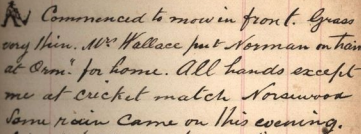 Commenced to mow in front. Grass
very thin. Mrs Wallace put Norman on train
at Orm.d for home. All hands except
me at cricket match Norsewood
Some rain came on this evening.